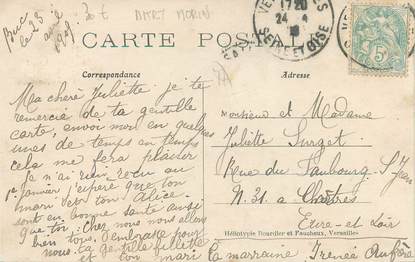 Buc
le 23
avril
30 €
MART MORIN
1720
24 - 4
SEINE ET OISE
5c
CARTE POSTALE
Correspondance
Adresse
Ma chère Juliette je te
remercie de ta gentille
carte, envoi moi en quelques
unes de temps en temps
cela me fera plaisir
Je n'ai rien reçu au
1er janvier j'espère que ton
mari et ton Alice
sont en bonne santé ainsi
que toi. Chez nous nous allons
bien tous. J'embrasse pour
nous ta gentille fillette
et ton mari
la marraine Irénée
Monsieur et Madame
Juliette Surget
Rue du Faubourg St Jean
N. 31 a Chartres
Eure et Loir
Héliotypie Bourdier et Faucheux, Versailles